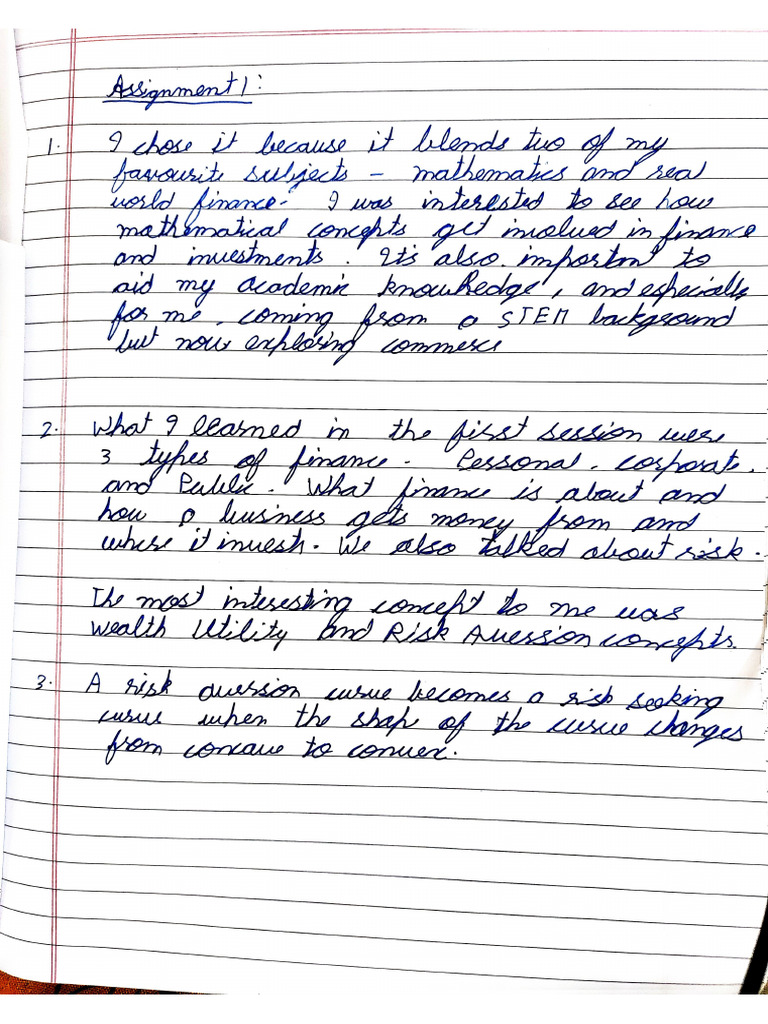 Assignment 1:
1. I chose it because it blends two of my
favourite subjects - mathematics and real
world finance. I was interested to see how
mathematical concepts get involved in finance
and investments. It's also important to
aid my academic knowledge, and especially
for me, coming from a STEM background
but now exploring commerce
2. What I learned in the first session were
3 types of finance. Personal, corporate,
and Public. What finance is about and
how a business gets money from and
where it invests. We also talked about risk.
The most interesting concept to me was
Wealth Utility and Risk Aversion concepts.
3. A risk aversion curve becomes a risk seeking
curve when the shape of the curve changes
from concave to convex.